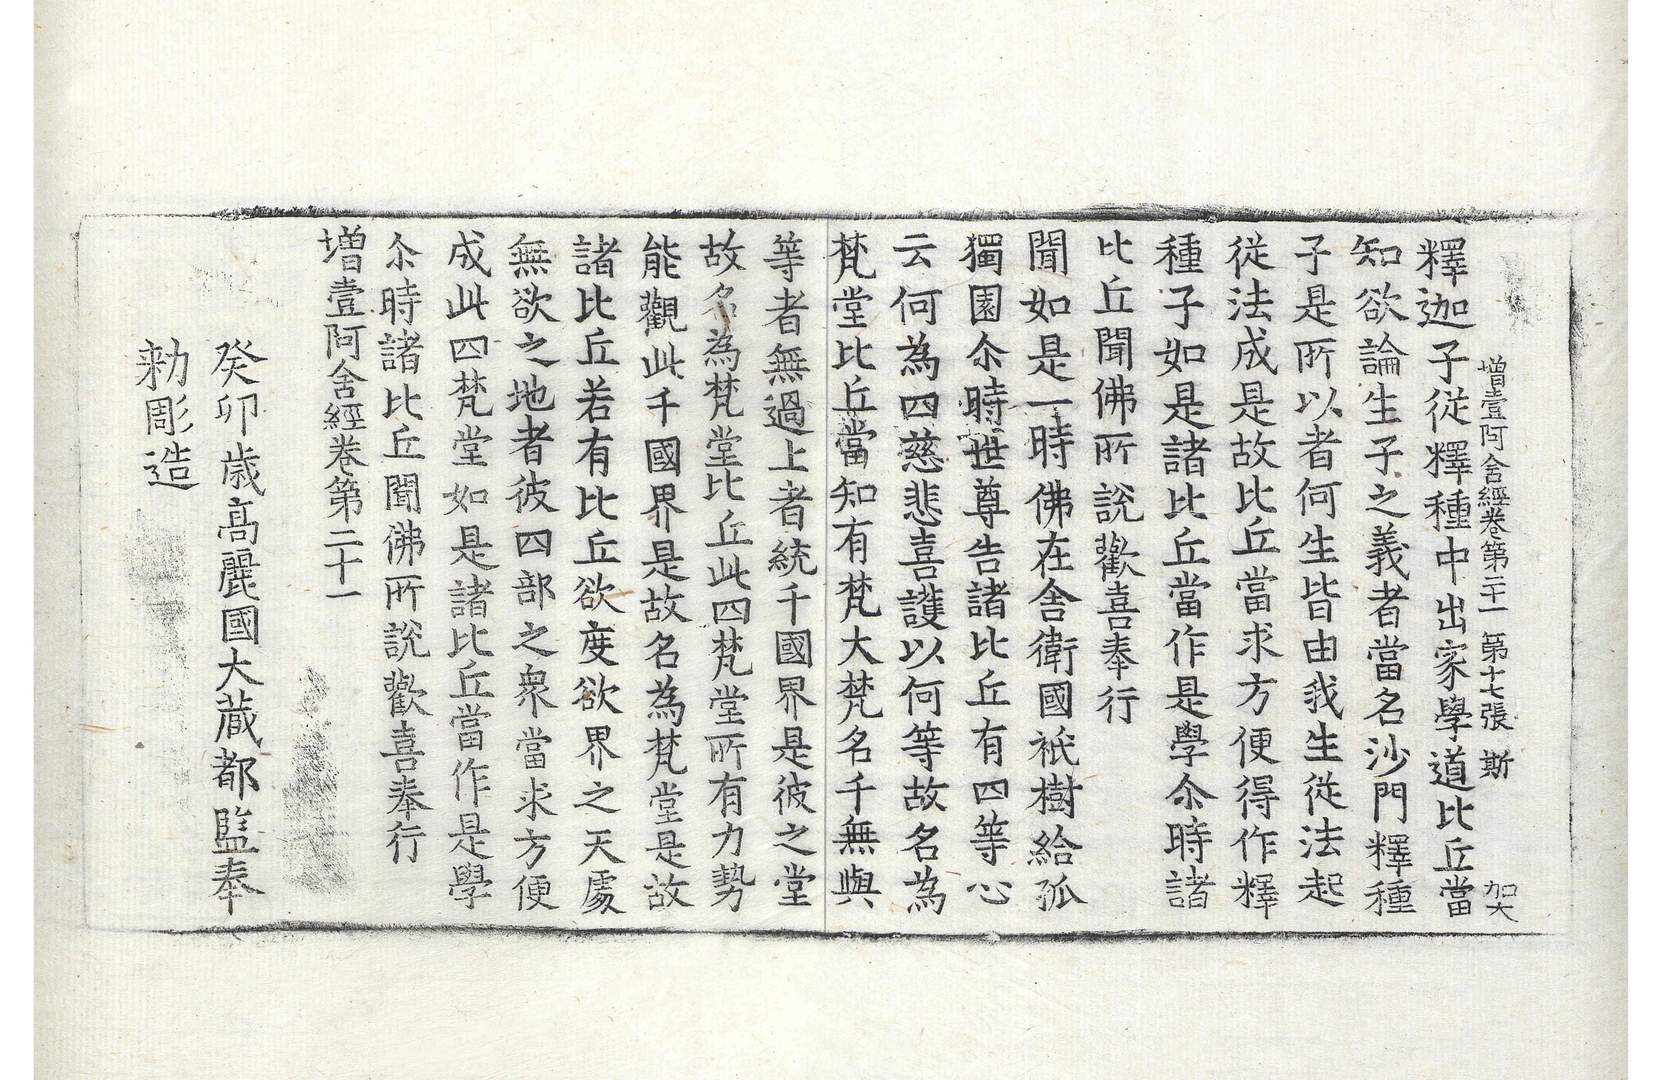 增壹阿含經卷第二十一 第十七張 斯 加大
釋迦子從釋種中出家學道比丘當
知欲論生子之義者當名沙門釋種
子是所以者何生皆由我生從法起
從法成是故比丘當求方便得作釋
種子如是諸比丘當作是學尒時諸
比丘聞佛所說歡喜奉行
聞如是一時佛在舍衛國祇樹給孤
獨園尒時世尊告諸比丘有四等心
云何為四慈悲喜護以何等故名為
梵堂比丘當知有梵大梵名千無與
等者無過上者統千國界是彼之堂
故名為梵堂比丘此四梵堂所有力勢
能觀此千國界是故名為梵堂是故
諸比丘若有比丘欲度欲界之天處
無欲之地者彼四部之衆當求方便
成此四梵堂如是諸比丘當作是學
尒時諸比丘聞佛所說歡喜奉行
增壹阿含經卷第二十一
癸卯歲高麗國大藏都監奉
勑彫造